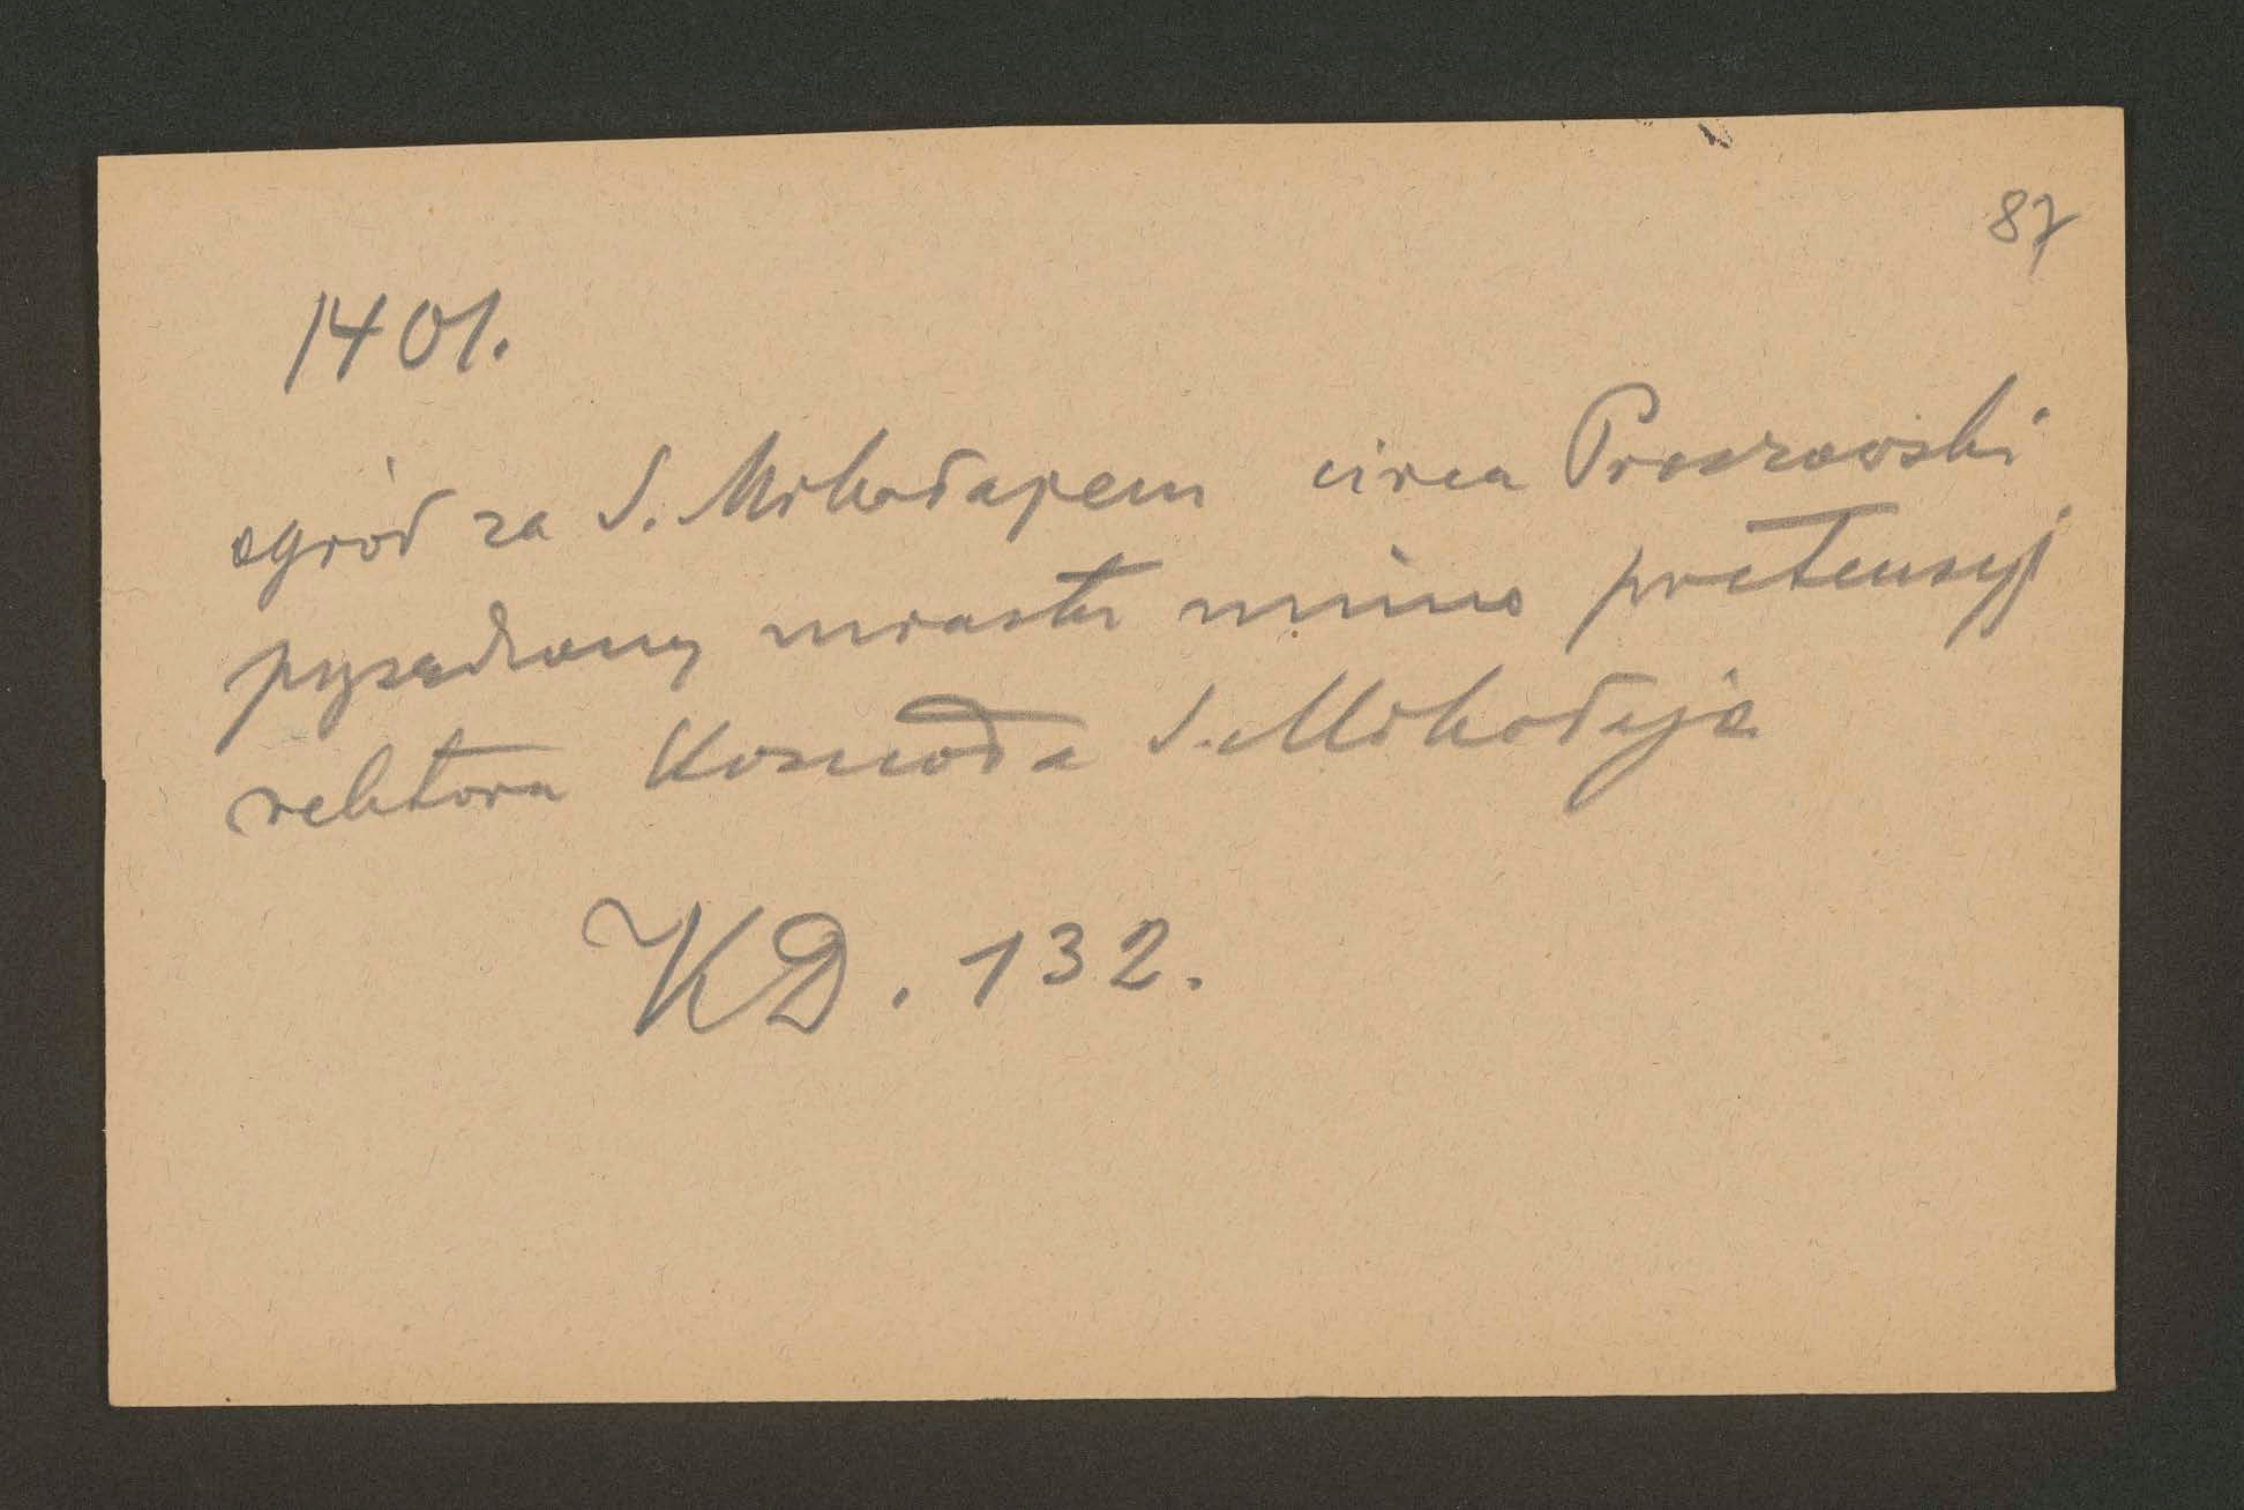 87
1401.
ogród za S. Mikołajem circa Proszowski
przysądzony miastu mimo pretensyj
rektora Kościoła S. Mikołaja
KD. 132.